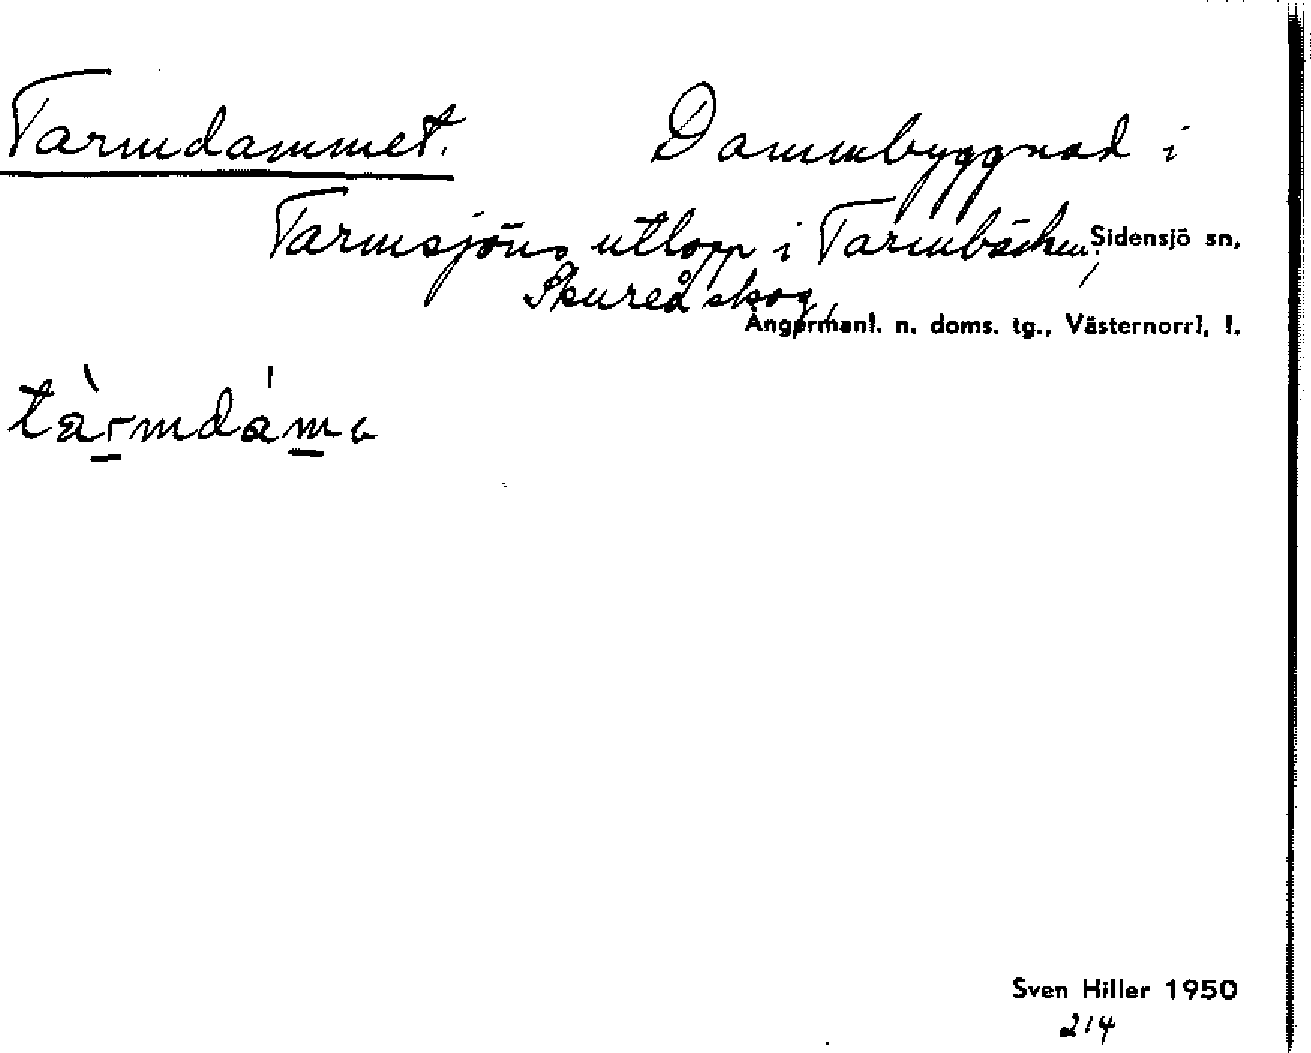 Tarmdammet. Dammbyggnad i
Tarmsjöns utlopp i Tarmbäcken, Sidensjö sn,
Skureå skog,
Ångermanl. n. doms. tg., Västernorrl. l.
tàrmdáma
Sven Hiller 1950
214